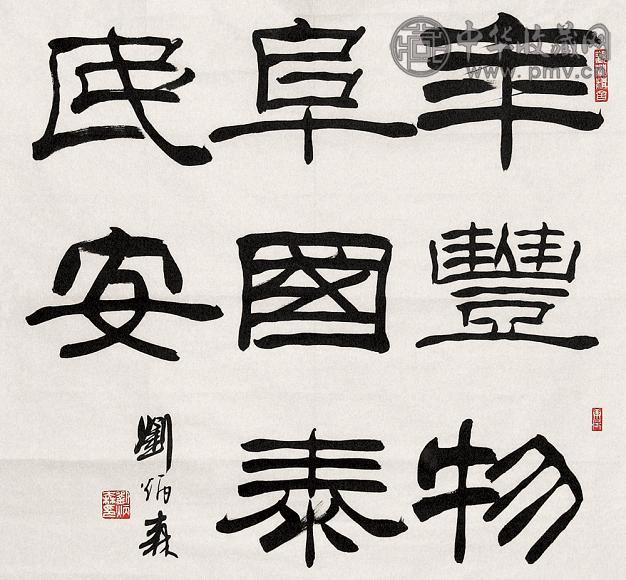 年豐物
阜國泰
民安
劉炳森
中华收藏网
www.pmv.cn